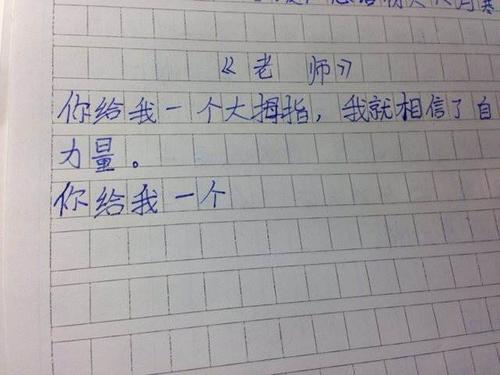 《老师》
你给我一个大拇指，我就相信了自
力量。
你给我一个